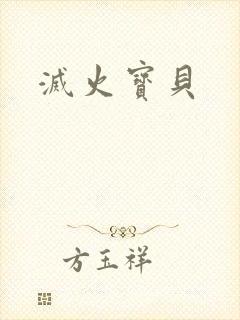 滅火寶貝
方玉祥